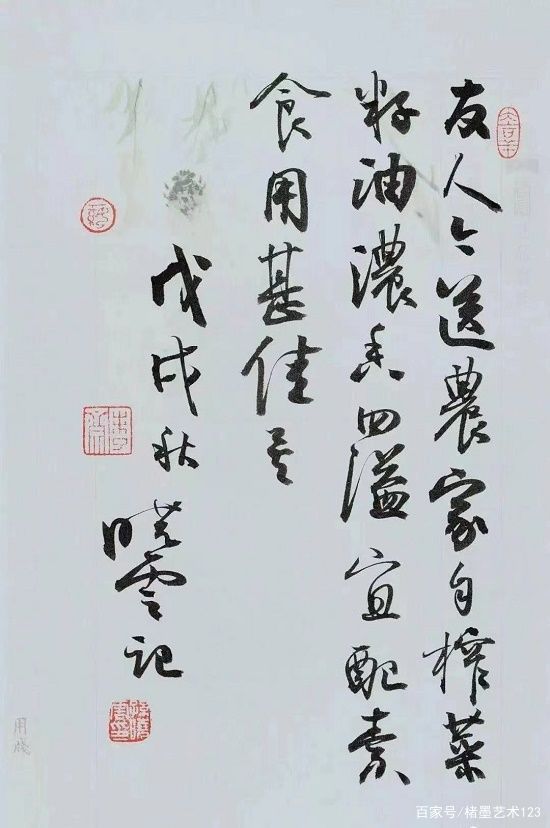 友人今送農家自榨菜
籽油濃香四溢宜配素
食用甚佳矣
戊戌秋曉雲記
大吉羊
用牋
百家号/楮墨艺术123